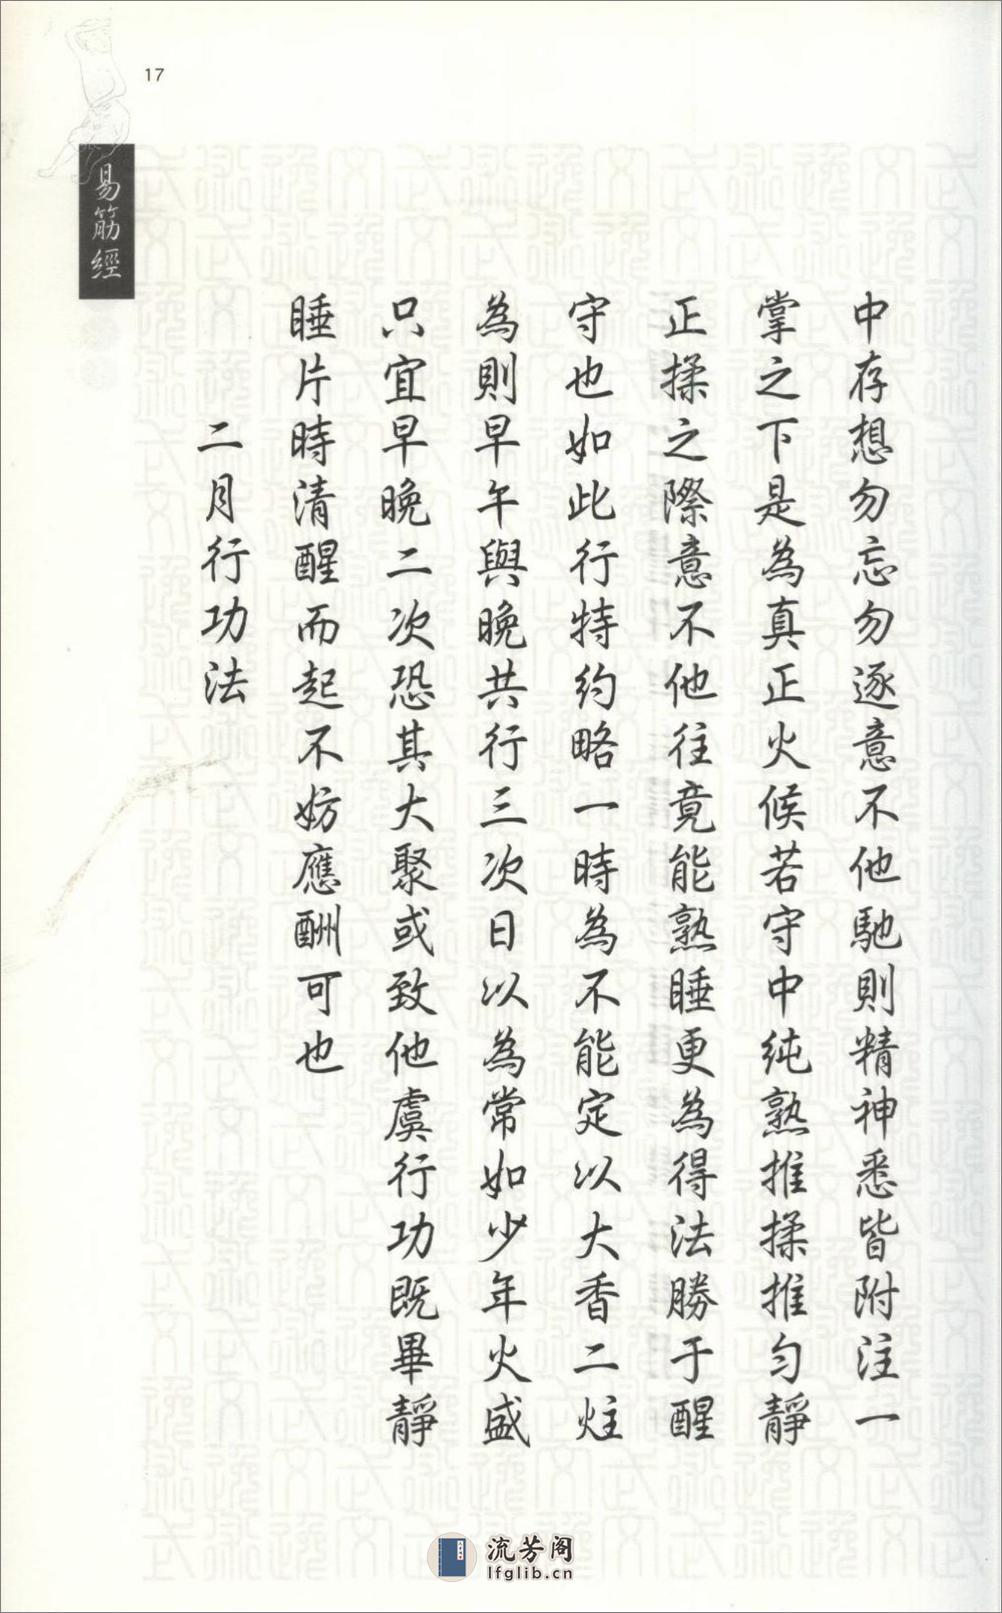 17
易筋經
中存想勿忘勿逐意不他馳則精神悉皆附注一
掌之下是為真正火候若守中純熟推揉推勻靜
正揉之際意不他往竟能熟睡更為得法勝于醒
守也如此行特約略一時為不能定以大香二炷
為則早午與晚共行三次日以為常如少年火盛
只宜早晚二次恐其大聚或致他虞行功既畢靜
睡片時清醒而起不妨應酬可也
二月行功法
流芳阁
lfglib.cn